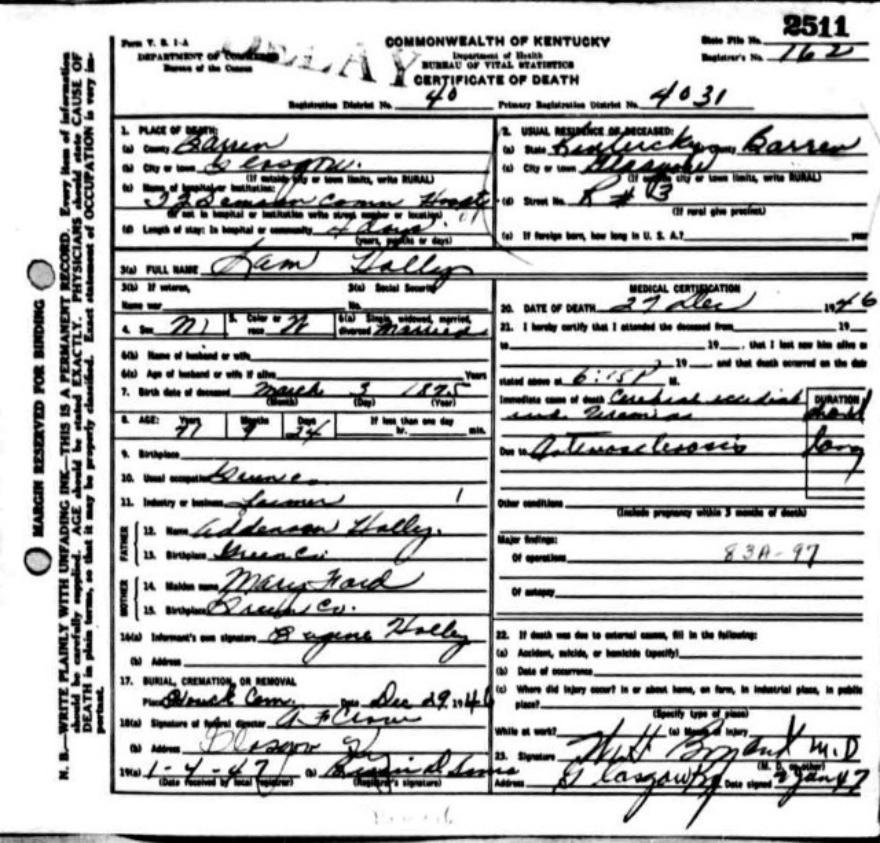 2511
Form V. S. 1-A
DELAY
COMMONWEALTH OF KENTUCKY
State File No.
DEPARTMENT OF COMMERCE
Department of Health
Registrar's No. 162
Bureau of the Census
BUREAU OF VITAL STATISTICS
CERTIFICATE OF DEATH
Registration District No. 40 Primary Registration District No. 4031
MARGIN RESERVED FOR BINDING
N. B.—WRITE PLAINLY WITH UNFADING INK—THIS IS A PERMANENT RECORD. Every item of information
should be carefully supplied. AGE should be stated EXACTLY. PHYSICIANS should state CAUSE OF
DEATH in plain terms, so that it may be properly classified. Exact statement of OCCUPATION is very im-
portant.
1. PLACE OF DEATH:
(a) County Barren
(b) City or town Glasgow.
(If outside city or town limits, write RURAL)
(c) Name of hospital or institution:
Comn Hospt
(If not in hospital or institution write street number or location)
(d) Length of stay: In hospital or community 4 days
(years, months or days)
2. USUAL RESIDENCE OF DECEASED:
(a) State Kentucky County Barren
(c) City or town Glasgow
(If outside city or town limits, write RURAL)
(d) Street No. R # 3
(If rural give precinct)
(e) If foreign born, how long in U. S. A.? year
3(a) FULL NAME Sam Holley
3(b) If veteran, 3(c) Social Security
Name war No.
4. Sex M 5. Color or race W 6(a) Single, widowed, married, divorced Married
6(b) Name of husband or wife
6(c) Age of husband or wife if alive Years
7. Birth date of deceased March 3 1875
(Month) (Day) (Year)
8. AGE: Years Months Days If less than one day
71 9 24 hr. min.
9. Birthplace
10. Usual occupation Green Co
11. Industry or business Farmer
FATHER
12. Name Addenson Holley.
13. Birthplace Green Co.
MOTHER
14. Maiden name Mary Ford
15. Birthplace Green Co.
16(a) Informant's own signature Eugene Holley
(b) Address
17. BURIAL, CREMATION, OR REMOVAL
Place Houck Cem. Date Dec 29, 1946
18(a) Signature of funeral director A F Crow
(b) Address Glasgow Ky
19(a) 1-4-47 (b)
(Date received by local registrar) (Registrar's signature)
MEDICAL CERTIFICATION
20. DATE OF DEATH 27 Dec 1946
21. I hereby certify that I attended the deceased from 19
to 19 , that I last saw him alive on
19 , and that death occurred on the date
stated above at 6:15P M.
Immediate cause of death Cerebral accident
and Uremia
DURATION
Due to Arteriosclerosis long
Other conditions
(Include pregnancy within 3 months of death)
Major findings:
Of operations 83A-97
Of autopsy
22. If death was due to external causes, fill in the following:
(a) Accident, suicide, or homicide (specify)
(b) Date of occurrence
(c) Where did injury occur? In or about home, on farm, in industrial place, in public
place?
(Specify type of place)
While at work? (e) Means of injury
23. Signature M.D
(M. D. or other)
Address Glasgow Ky Date signed 2 Jan 47